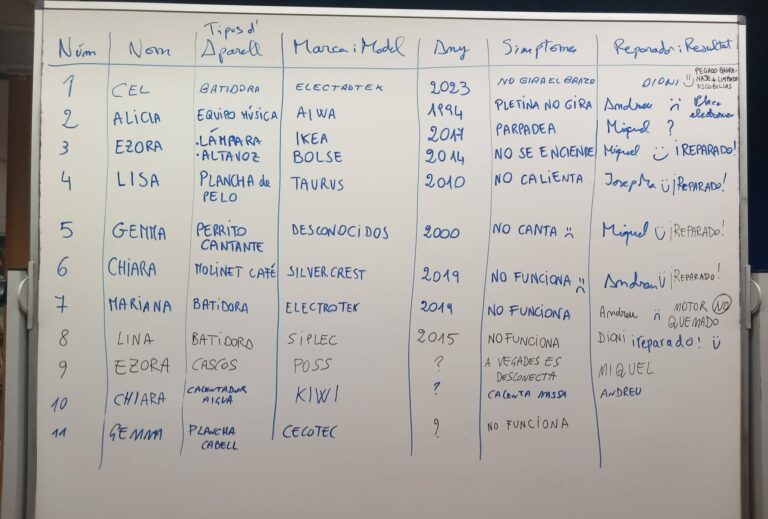 Núm Nom Tipus d' Aparell Marca i Model Any Símptomes Reparador i Resultat
1 CEL BATIDORA ELECTROTEK 2023 NO GIRA EL BRAZO DIONI PEGADO ENGRA-
NAJE + LIMPIADA
ESCOBILLAS
2 ALICIA EQUIPO MÚSICA AIWA 1994 PLETINA NO GIRA Andreu Placa
electrónica
3 EZORA ·LÁMPARA IKEA 2017 PARPADEA Miquel ?
·ALTAVOZ BOLSE 2014 NO SE ENCIENDE Miquel ¡REPARADO!
4 LISA PLANCHA de TAURUS 2010 NO CALIENTA JosepMa ¡REPARADO!
PELO
5 GEMMA PERRITO DESCONOCIDOS 2000 NO CANTA Miquel ¡REPARADO!
CANTANTE
6 CHIARA MOLINET CAFÉ SILVERCREST 2019 NO FUNCIONA Andreu ¡REPARADO!
7 MARIANA BATIDORA ELECTROTEK 2019 NO FUNCIONA Andreu MOTOR NO
QUEMADO
8 LINA BATIDORA SIPLEC 2015 NO FUNCIONA DIONI ¡reparado!
9 EZORA CASCOS POSS ? A VEGADES ES
DESCONECTA MIQUEL
10 CHIARA CALENTADOR
AIGUA KIWI ? CALENTA MASSA ANDREU
11 GEMMA PLANCHA
CABELL CECOTEC ? NO FUNCIONA